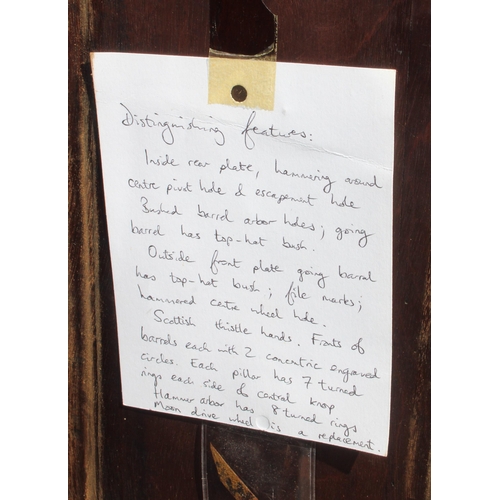 Distinguishing features:
Inside rear plate, hammering around
centre pivot hole & escapement hole
Bushed barrel arbor holes; going
barrel has top-hat bush.
Outside front plate going barrel
has top-hat bush; file marks;
hammered cetre wheel hole.
Scottish thistle hands. Fronts of
barrels each with 2 concentric engraved
circles. Each pillar has 7 turned
rings each side of central knop
Hammer arbor has 8 turned rings
Moon drive wheel is a replacement.